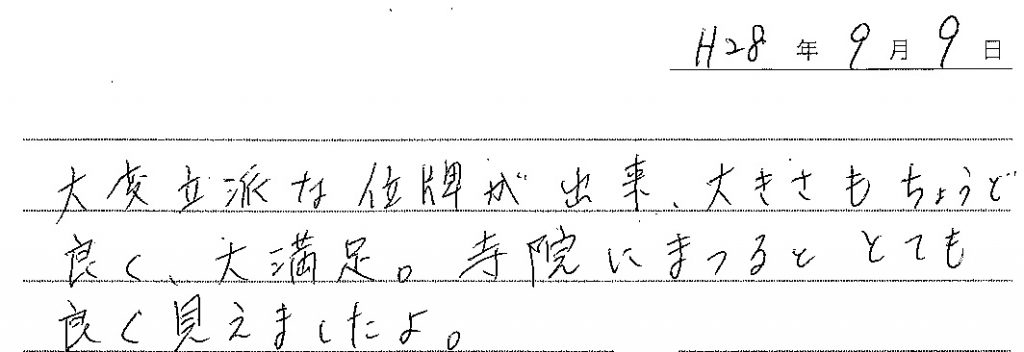 H28年9月9日
大変立派な位牌が出来、大きさもちょうど
良く、大満足。寺院にまつるととても
良く見えましたよ。